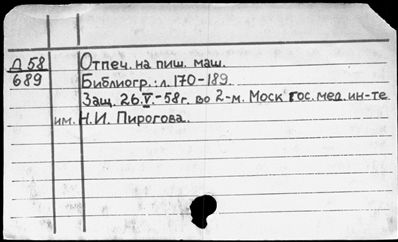 Д 58 Отпеч. на пиш. маш.
689 Библиогр.: л. 170-189.
Защ. 26.V.-58г. во 2-м. Моск гос. мед. ин-те
им. Н.И. Пирогова.